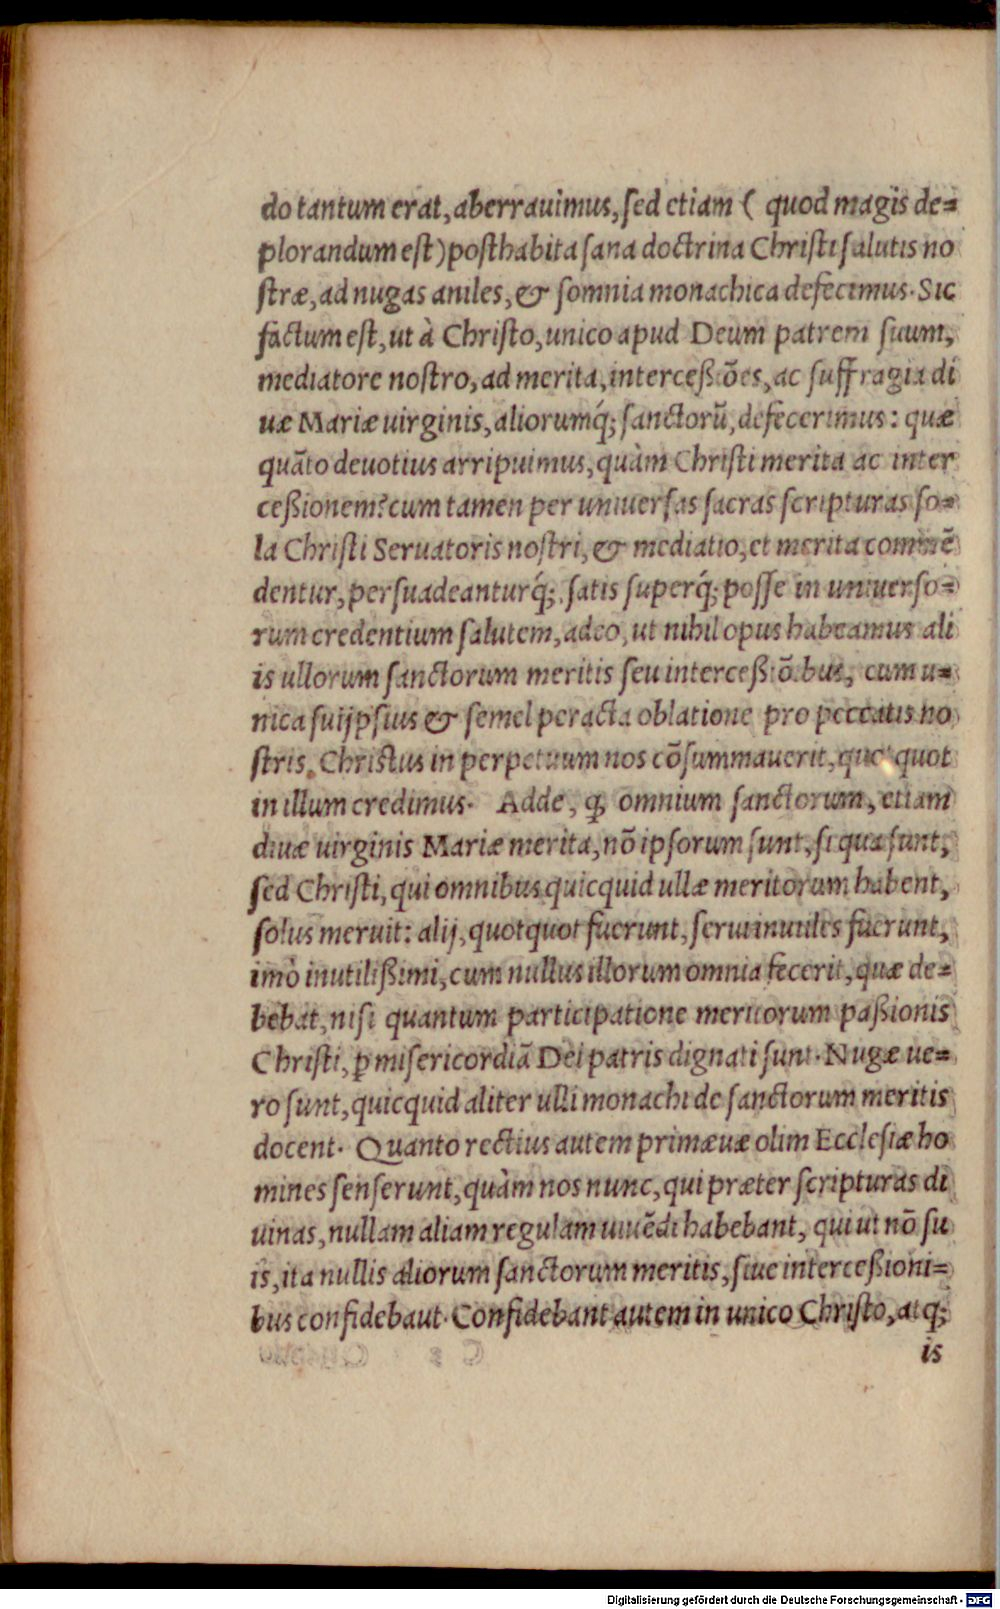 do tantum erat, aberrauimus, sed etiam ( quod magis de=
plorandum est) posthabita sana doctrina Christi salutis no
stræ, ad nugas aniles, & somnia monachica defecimus. Sic
factum est, ut à Christo, unico apud Deum patrem suum,
mediatore nostro, ad merita, interceßiões, ac suffragia di
uæ Mariæ uirginis, aliorumq́; sanctorũ, defecerimus: quæ
quãto deuotius arripuimus, quàm Christi merita ac inter
ceßionem? cum tamen per uniuersas sacras scripturas so=
la Christi Seruatoris nostri, & mediatio, et merita commẽ
dentur, persuadeanturq́; satis superq́; posse in uniuerso=
rum credentium salutem, adeo, ut nihil opus habeamus ali
is ullorum sanctorum meritis seu interceßiõibus, cum u=
nica suijpsius & semel peracta oblatione pro peccatis no
stris, Christus in perpetuum nos cõsummauerit, quotquot
in illum credimus. Adde, ꝙ omnium sanctorum, etiam
diuæ uirginis Mariæ merita, nõ ipsorum sunt, si qua sunt,
sed Christi, qui omnibus quicquid ullæ meritorum habent,
solus meruit: alij, quotquot fuerunt, serui inutiles fuerunt,
imò inutilißimi, cum nullus illorum omnia fecerit, quæ de=
bebat, nisi quantum participatione meritorum paßionis
Christi, ꝑ misericordiã Dei patris dignati sunt. Nugæ ue=
ro sunt, quicquid aliter ulli monachi de sanctorum meritis
docent. Quanto rectius autem primæuæ olim Ecclesiæ ho
mines senserunt, quàm nos nunc, qui præter scripturas di
uinas, nullam aliam regulam uiuẽdi habebant, qui ut nõ su
is, ita nullis aliorum sanctorum meritis, siue interceßioni=
bus confidebaut. Confidebant autem in unico Christo, atq́;
is
Digitalisierung gefördert durch die Deutsche Forschungsgemeinschaft - DFG